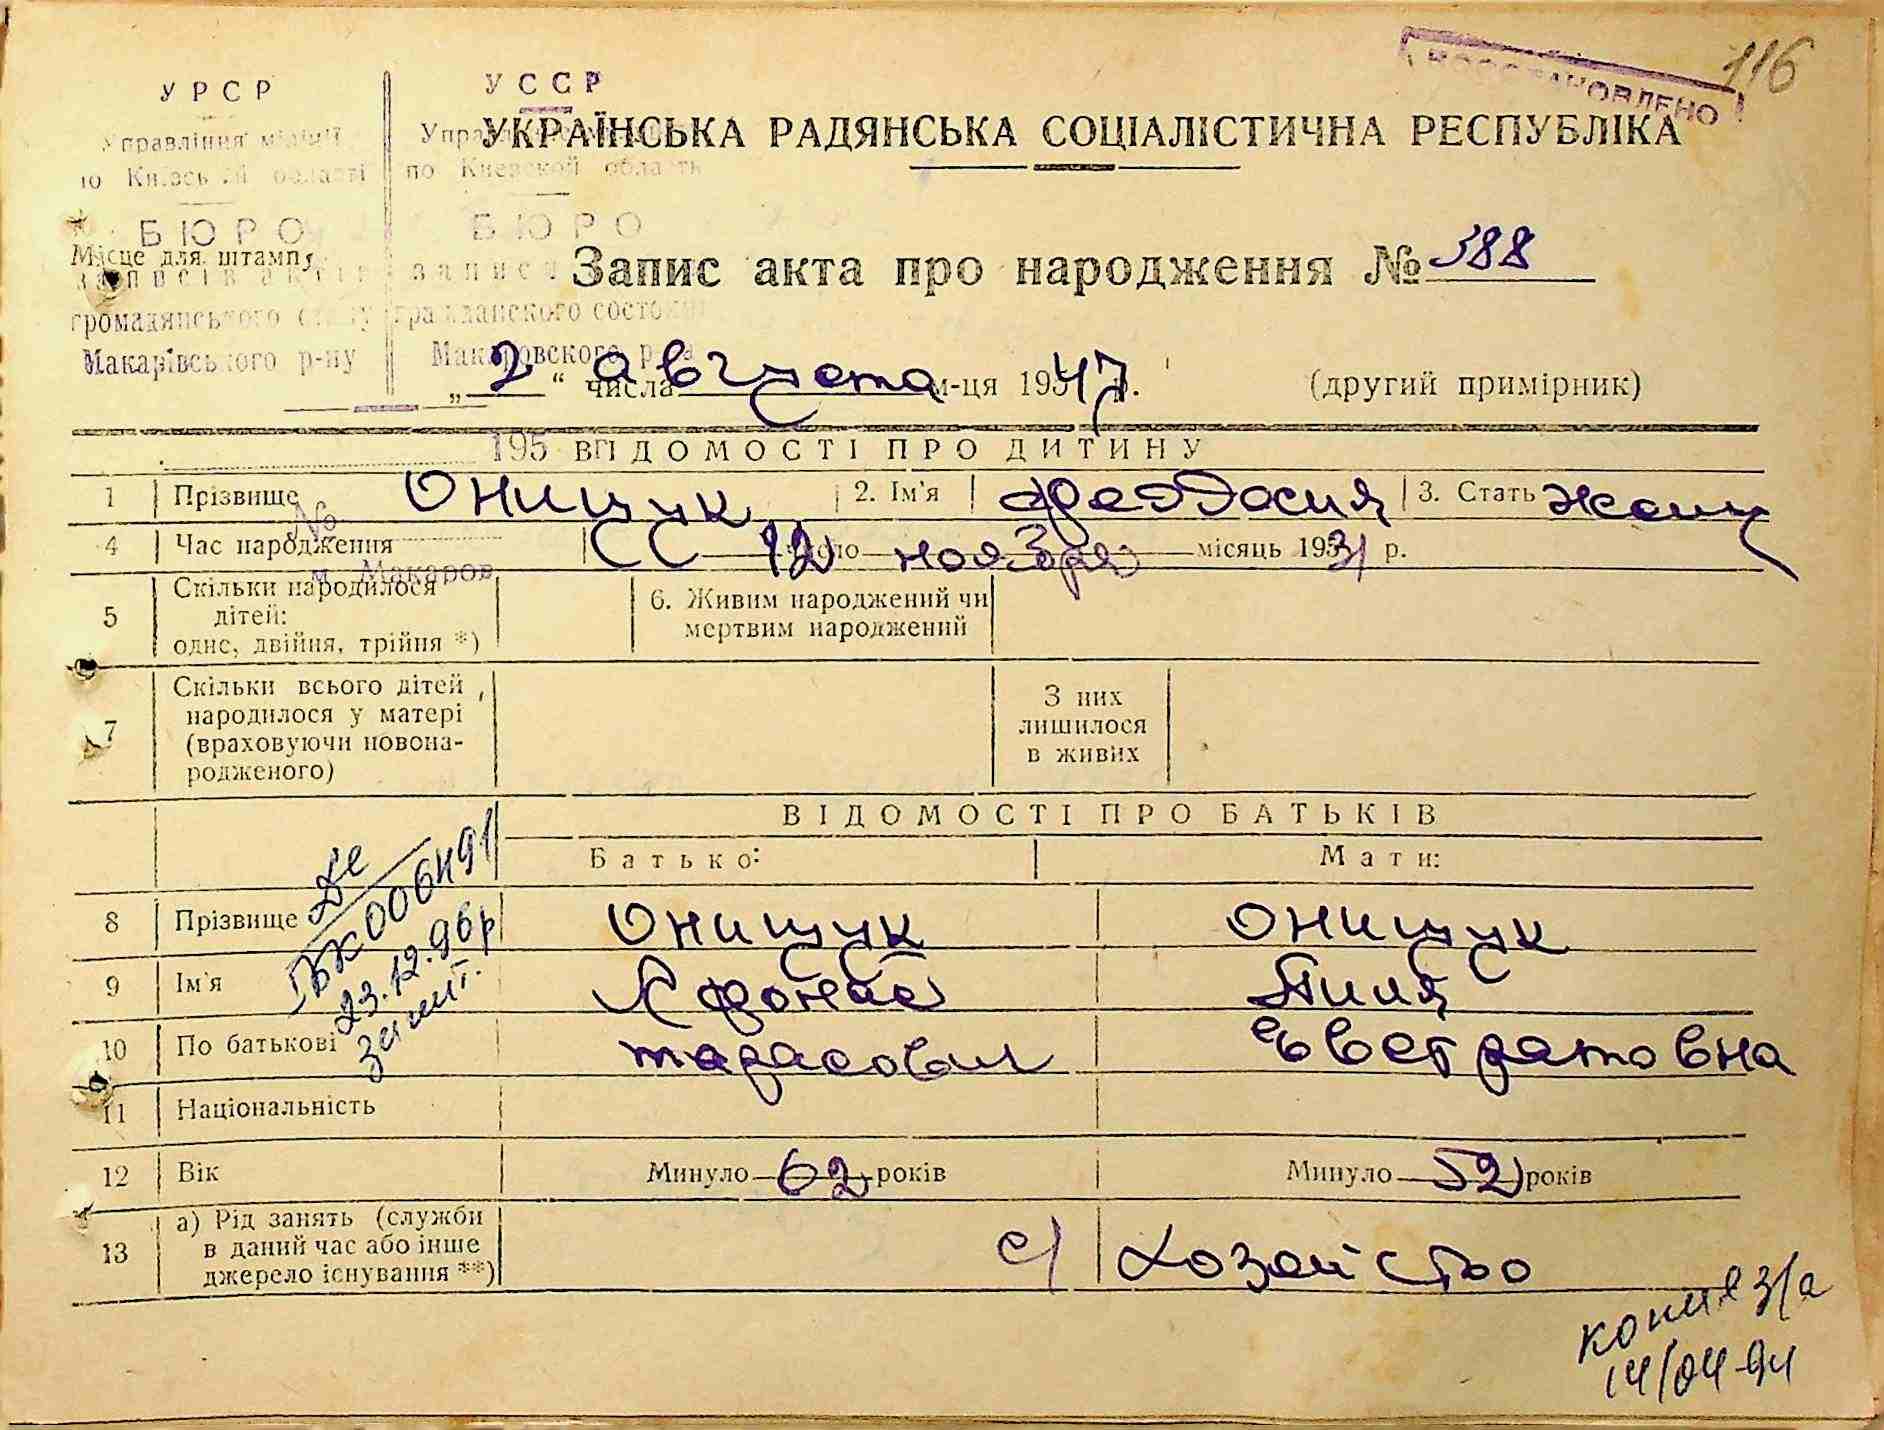 116
ВОССТАНОВЛЕНО
УРСР
УССР
УКРАЇНСЬКА РАДЯНСЬКА СОЦІАЛІСТИЧНА РЕСПУБЛІКА
Управління міліції
по Київській області
по Киевской области
БЮРО
БЮРО
Місце для штампу
записів актів
громадянського стану
гражданского состоян
Макарівського р-ну
Макаровского р-на
Запис акта про народження № 388
„2“ числа августа м-ця 1947 г.
(другий примірник)
195
ВІДОМОСТІ ПРО ДИТИНУ
1 Прізвище Онищук 2. Ім'я Феодосия 3. Стать женщ
№
4 Час народження 12 число ноября місяць 1931 р.
м. Макаров
5 Скільки народилося
дітей:
одне, двійня, трійня *)
6. Живим народжений чи
мертвим народжений
7 Скільки всього дітей
народилося у матері
(враховуючи новона-
родженого)
З них
лишилося
в живих
ВІДОМОСТІ ПРО БАТЬКІВ
Батько: Мати:
8 Прізвище Онищук Онищук
9 Ім'я
10 По батькові тарасович Евстратовна
006491
23.12.96р
11 Національність
12 Вік Минуло 62 років Минуло 52 років
13 а) Рід занять (служби
в даний час або інше
джерело існування **)
с/хозайство
копия з/а
14/04-94